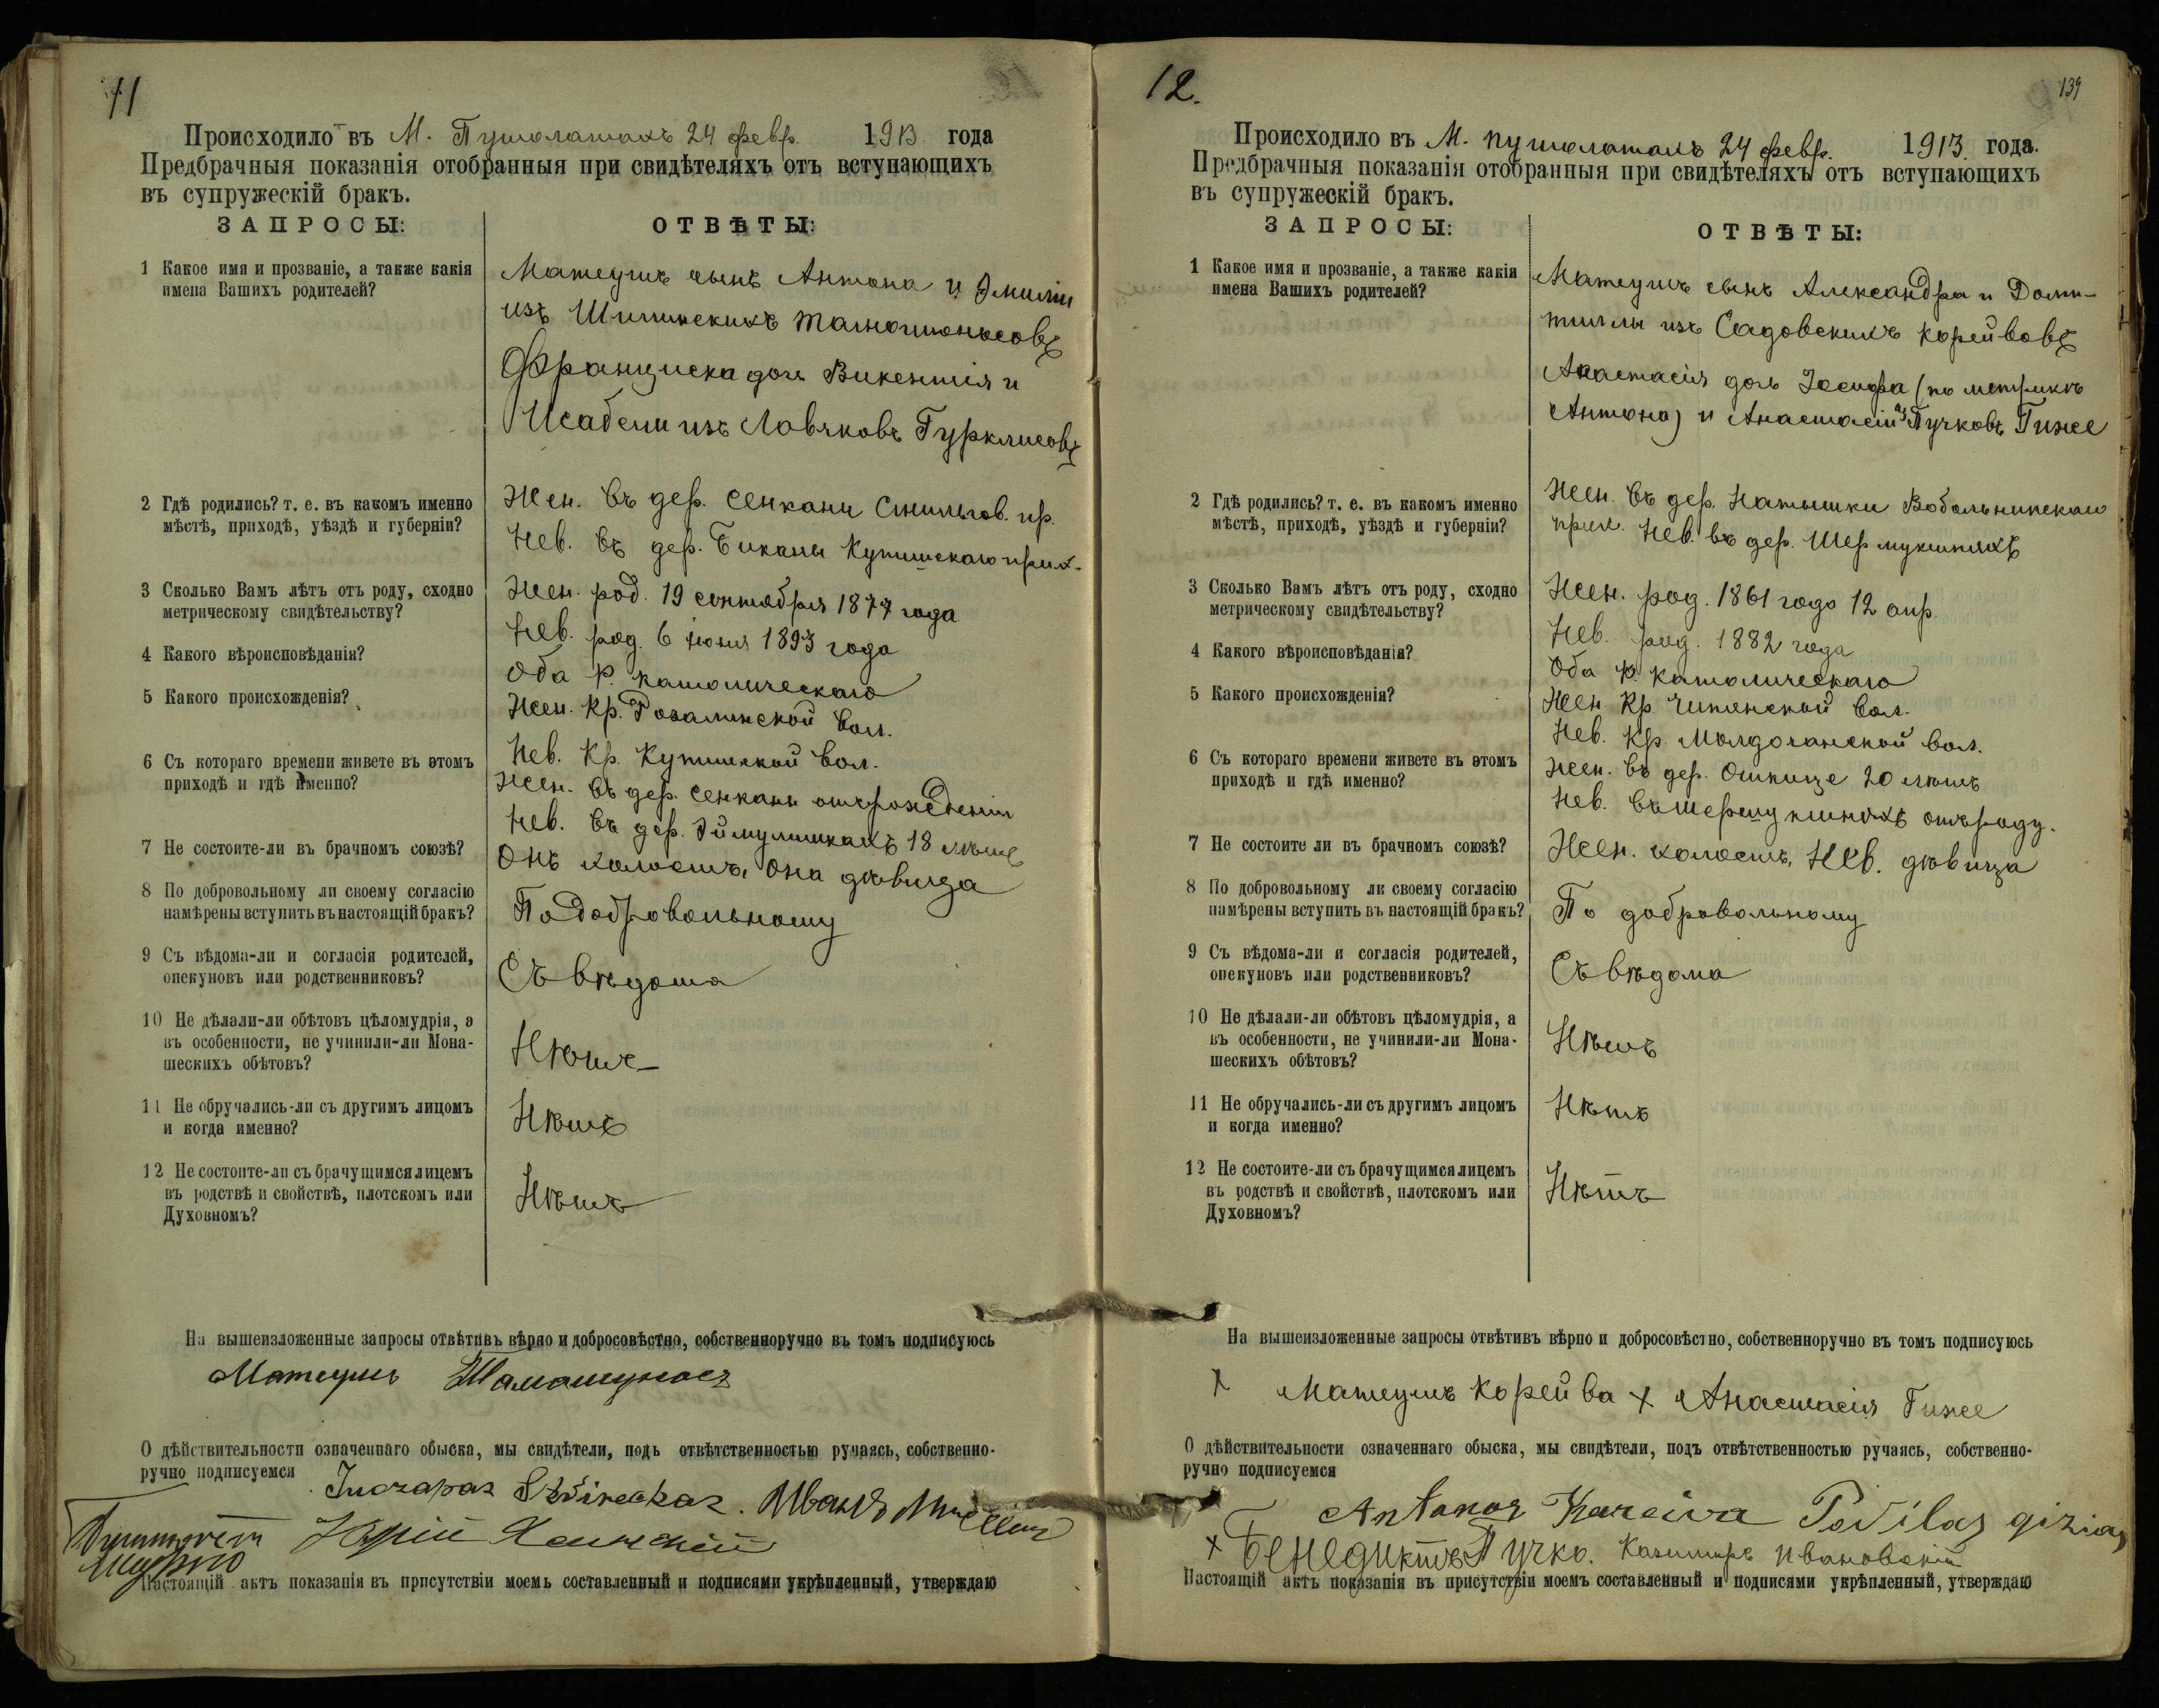 11
Происходило въ М. Пушолатахъ 24 февр. 1913 года
Предбрачныя показанія отобранныя при свидѣтеляхъ отъ вступающихъ
въ супружескій бракъ.
ЗАПРОСЫ: ОТВѢТЫ:
1 Какое имя и прозваніе, а также какія
имена Вашихъ родителей?
Матеушъ сынъ Антона и Эмиліи
изъ Шилинскихъ
Франциска дочь Викентія и
Исабели изъ Ловчковъ Гурклисовъ
2 Гдѣ родились? т. е. въ какомъ именно
мѣстѣ, приходѣ, уѣздѣ и губерніи?
Жен. въ дер. Сенкани пр.
Нев. въ дер. Биканы Купишскаго прих.
3 Сколько Вамъ лѣтъ отъ роду, сходно
метрическому свидѣтельству?
Жен. род. 19 сентября 1877 года
Нев. род. 6 іюня 1893 года
4 Какого вѣроисповѣданія?
Оба р. католическаго
5 Какого происхожденія?
Жен. Кр. Розалинской вол.
Нев. Кр. Купишской вол.
6 Съ котораго времени живете въ этомъ
приходѣ и гдѣ именно?
Жен. въ дер. Сенкани отъ рожденія
Нев. въ дер. 18 лѣтъ
7 Не состоите-ли въ брачномъ союзѣ?
Онъ холостъ, она дѣвица
8 По добровольному ли своему согласію
намѣрены вступить въ настоящій бракъ?
По добровольному
9 Съ вѣдома-ли и согласія родителей,
опекуновъ или родственниковъ?
Съ вѣдома
10 Не дѣлали-ли обѣтовъ цѣломудрія, а
въ особенности, не учинили-ли Мона-
шескихъ обѣтовъ?
Нѣтъ
11 Не обручались-ли съ другимъ лицомъ
и когда именно?
Нѣтъ
12 Не состоите-ли съ брачущимся лицемъ
въ родствѣ и свойствѣ, плотскомъ или
Духовномъ?
Нѣтъ
На вышеизложенные запросы отвѣтивъ вѣрно и добросовѣстно, собственноручно въ томъ подписуюсь
Матеушъ
О дѣйствительности означеннаго обыска, мы свидѣтели, подъ отвѣтственностью ручаясь, собственно-
ручно подписуемся
Иванъ
Юрій
Настоящій актъ показанія въ присутствіи моемъ составленный и подписями укрѣпленный, утверждаю
12. 139
Происходило въ М. Пушолатахъ 24 февр. 1913. года.
Предбрачныя показанія отобранныя при свидѣтеляхъ отъ вступающихъ
въ супружескій бракъ.
ЗАПРОСЫ: ОТВѢТЫ:
1 Какое имя и прозваніе, а также какія
имена Вашихъ родителей?
Матеушъ сынъ Александра и Доми-
тиллы изъ Садовскихъ Корейвовъ
Анастасія дочь Іосифа (по метрикѣ
Антона) и Анастасіи изъ Пучковъ Гиже
2 Гдѣ родились? т. е. въ какомъ именно
мѣстѣ, приходѣ, уѣздѣ и губерніи?
Жен. въ дер. Натышки Вобольникскаго
прих. Нев. въ дер. Шермукшняхъ
3 Сколько Вамъ лѣтъ отъ роду, сходно
метрическому свидѣтельству?
Жен. род. 1861 года 12 апр.
Нев. род. 1882 года
4 Какого вѣроисповѣданія?
Оба р. католическаго
5 Какого происхожденія?
Жен. Кр. вол.
Нев. Кр. вол.
6 Съ котораго времени живете въ этомъ
приходѣ и гдѣ именно?
Жен. въ дер. 20 лѣтъ
Нев. въ Шермукшняхъ отъ роду.
7 Не состоите ли въ брачномъ союзѣ?
Жен. холостъ, Нев. дѣвица
8 По добровольному ли своему согласію
намѣрены вступить въ настоящій бракъ?
По добровольному
9 Съ вѣдома-ли и согласія родителей,
опекуновъ или родственниковъ?
Съ вѣдома
10 Не дѣлали-ли обѣтовъ цѣломудрія, а
въ особенности, не учинили-ли Мона-
шескихъ обѣтовъ?
Нѣтъ
11 Не обручались-ли съ другимъ лицомъ
и когда именно?
Нѣтъ
12 Не состоите-ли съ брачущимся лицемъ
въ родствѣ и свойствѣ, плотскомъ или
Духовномъ?
Нѣтъ
На вышеизложенные запросы отвѣтивъ вѣрно и добросовѣстно, собственноручно въ томъ подписуюсь
X Матеушъ Корейва X Анастасія Гиже
О дѣйствительности означеннаго обыска, мы свидѣтели, подъ отвѣтственностью ручаясь, собственно-
ручно подписуемся
Antanas Kareiva Povilas gizias
X Бенедиктъ Пучко. Казимиръ Ивановскій
Настоящій актъ показанія въ присутствіи моемъ составленный и подписями укрѣпленный, утверждаю